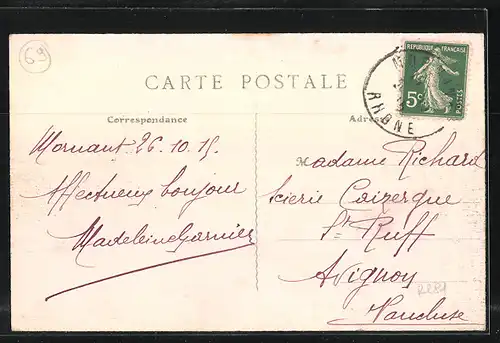 69
CARTE POSTALE
REPUBLIQUE FRANÇAISE
5c
POSTES
RHONE
Correspondance
Adresse
Mornant 26.10.15
Affectueux bonjour
Madeleine Garnier
Madame Richard
Scierie Coizergue
St Ruff
Avignon
Vaucluse